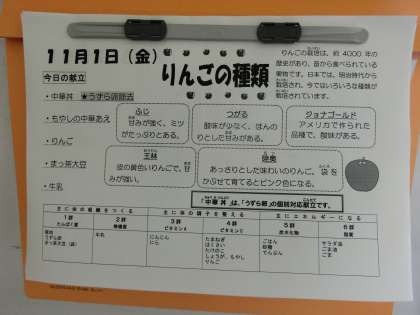 11月1日(金)
りんごの種類
りんごの栽培は、約4000年の
歴史があり、昔から食べられている
果物です。日本では、明治時代から
栽培され、今ではいろいろな種類が
栽培されています。
今日の献立
・中華丼 ★うずら卵除去
・もやしの中華あえ
・りんご
・まっ茶大豆
・牛乳
ふじ
甘みが強く、ミツ
がたっぷりとある。
つがる
酸味が少なく、ほんの
りとした甘みがある。
ジョナゴールド
アメリカで作られた
品種で、酸味がある。
王林
皮の黄色いりんごで、甘
みが強い。
陸奥
あっさりとした味わいのりんご、袋を
かぶせて育てるとピンク色になる。
「中華丼」は、「うずら卵」の個別対応献立です。
主に体の組織をつくる
主に体の調子を整える
主にエネルギーになる
1群
たんぱく質
2群
無機質
3群
ビタミンA
4群
ビタミンC
5群
炭水化物
6群
脂質
豚肉
うずら卵
まっ茶大豆
牛乳
にんじん
にら
たまねぎ
はくさい
たけのこ
しょうが、もやし
りんご
ごはん
砂糖
でんぷん
サラダ油
ごま油
ごま